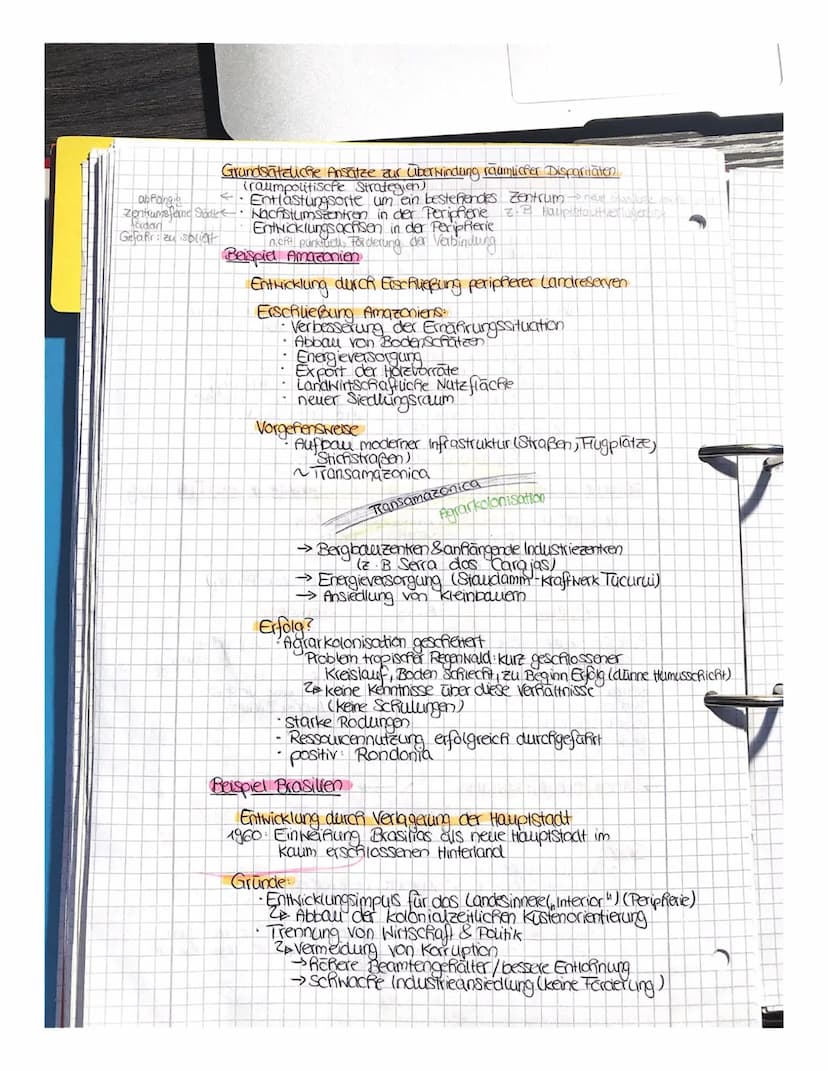 Grundsätzliche Ansätze zur Überwindung räumlicher Disparitäten
(raumpolitische Strategien)
← · Entlastungsorte um ein bestehendes Zentrum → neue
abhängig
zentrumsferne Städte ← · Wachstumszentren in der Peripherie z.B Hauptstadtverlagerung
fördern
Gefahr: zu isoliert
Entwicklungsachsen in der Peripherie
nicht punktuell, Förderung der Verbindung
Beispiel Amazonien
Entwicklung durch Erschließung peripherer Landreserven
Erschließung Amazoniens:
· Verbesserung der Ernährungssituation
· Abbau von Bodenschätzen
· Energieversorgung
· Export der Holzvorräte
· Landwirtschaftliche Nutzfläche
· neuer Siedlungsraum
Vorgehensweise
· Aufbau moderner Infrastruktur (Straßen, Flugplätze,
Stichstraßen)
~ Transamazonica
Transamazonica
Agrarkolonisation
→ Bergbauzentren & anhängende Industriezentren
(z.B Serra dos Carajas)
→ Energieversorgung (Staudamm-Kraftwerk Tucurui)
→ Ansiedlung von Kleinbauern
Erfolg?
· Agrarkolonisation gescheitert
Problem tropischer Regenwald: kurz geschlossener
Kreislauf, Boden schlecht, zu Beginn Erfolg (dünne Humusschicht)
↳ keine Kenntnisse über diese Verhältnisse
(keine Schulungen)
· starke Rodungen
- Ressourcennutzung erfolgreich durchgeführt
· positiv: Rondonia
Beispiel Brasilien
Entwicklung durch Verlagerung der Hauptstadt
1960: Einweihung Brasilias als neue Hauptstadt im
kaum erschlossenen Hinterland
Gründe:
· Entwicklungsimpuls für das Landesinnere („Interior") (Peripherie)
↳ Abbau der kolonialzeitlichen Küstenorientierung
· Trennung von Wirtschaft & Politik
↳ Vermeidung von Korruption
→ höhere Beamtengehälter / bessere Entlohnung
→ schwache Industrieansiedlung (keine Förderung)